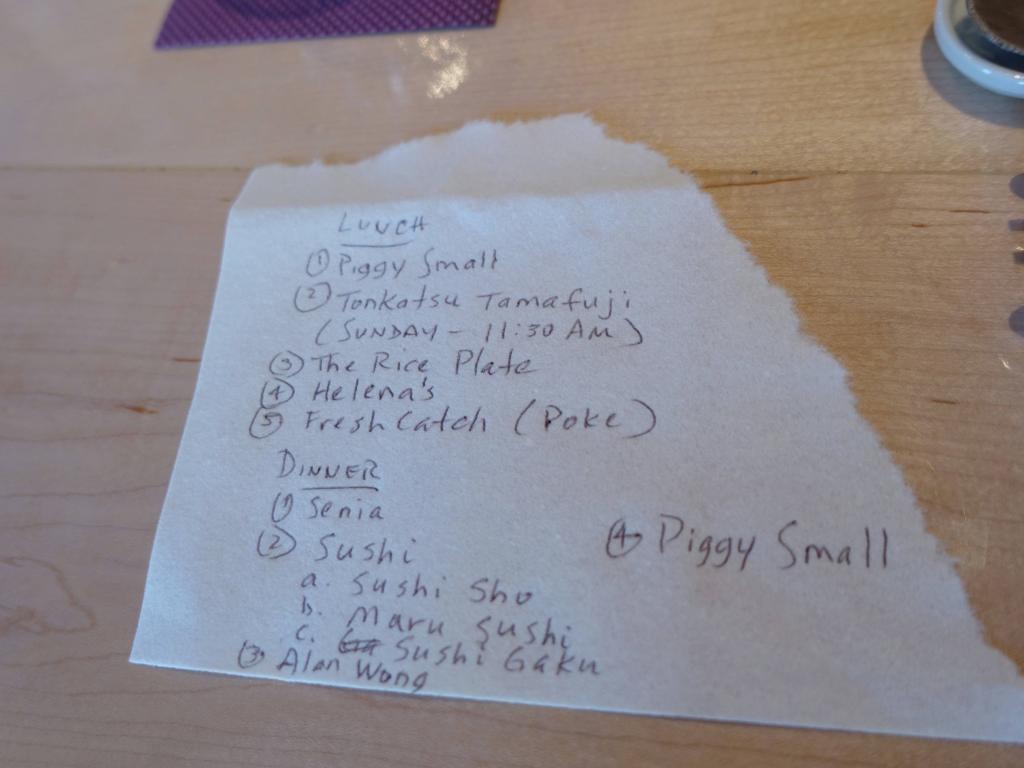 LUNCH
① Piggy Small
② Tonkatsu Tamafuji
(SUNDAY - 11:30 AM)
③ The Rice Plate
④ Helena's
⑤ Fresh Catch (Poke)
DINNER
① Senia
② Sushi
a. Sushi Sho
b. Maru Sushi
c. Sushi Gaku
③ Alan Wong
④ Piggy Small